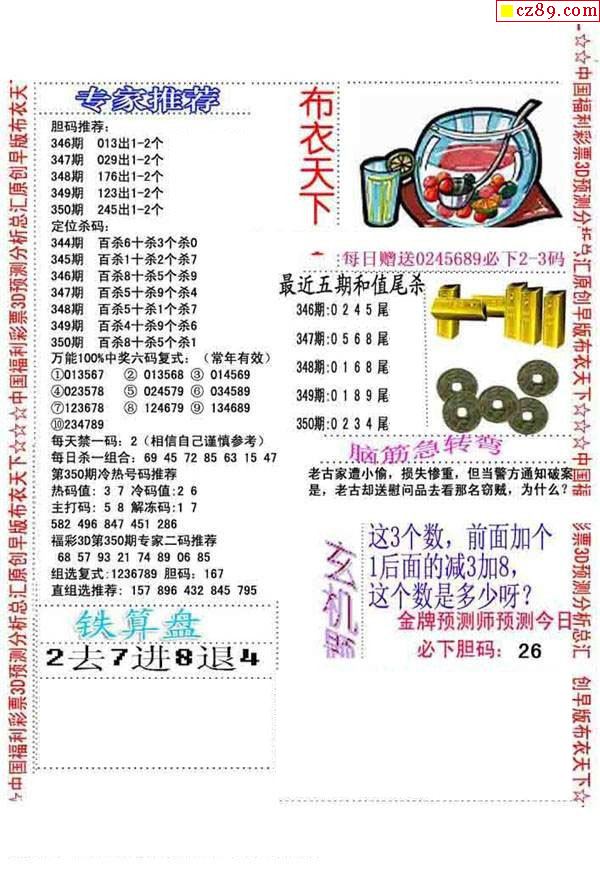 cz89.com
☆☆中国福利彩票3D预测分析总汇原创早版布衣天下☆☆☆中国福
彩票3D预测分析总汇
创早版布衣天下☆
☆中国福利彩票3D预测分析总汇原创早版布衣天下☆☆☆中国福利彩票3D预测分析总汇原创早版布衣天
专家推荐
胆码推荐:
346期 013出1-2个
347期 029出1-2个
348期 176出1-2个
349期 123出1-2个
350期 245出1-2个
定位杀码:
344期 百杀6十杀3个杀0
345期 百杀1十杀2个杀7
346期 百杀8十杀5个杀9
347期 百杀5十杀9个杀4
348期 百杀5十杀1个杀7
349期 百杀4十杀9个杀6
350期 百杀8十杀5个杀1
万能100%中奖六码复式:（常年有效）
①013567 ② 013568 ③ 014569
④023578 ⑤ 024579 ⑥ 034589
⑦123678 ⑧ 124679 ⑨ 134689
⑩234789
每天禁一码: 2（相信自己谨慎参考）
每日杀一组合: 69 45 72 85 63 15 47
第350期冷热号码推荐
热码值: 3 7 冷码值:2 6
主打码: 5 8 解冻码:1 7
582 496 847 451 286
福彩3D第350期专家二码推荐
68 57 93 21 74 89 06 85
组选复式:1236789 胆码: 167
直组选推荐: 157 896 432 845 795
铁算盘
2去7进8退4
布衣天下
每日赠送0245689必下2-3码
最近五期和值尾杀
346期:0 2 4 5 尾
347期:0 5 6 8 尾
348期:0 1 6 8 尾
349期:0 1 8 9 尾
350期:0 2 3 4 尾
脑筋急转弯
老古家遭小偷，损失惨重，但当警方通知破案
是，老古却送慰问品去看那名窃贼，为什么?
玄机
这3个数，前面加个
1后面的减3加8，
这个数是多少呀？
金牌预测师预测今日
必下胆码: 26